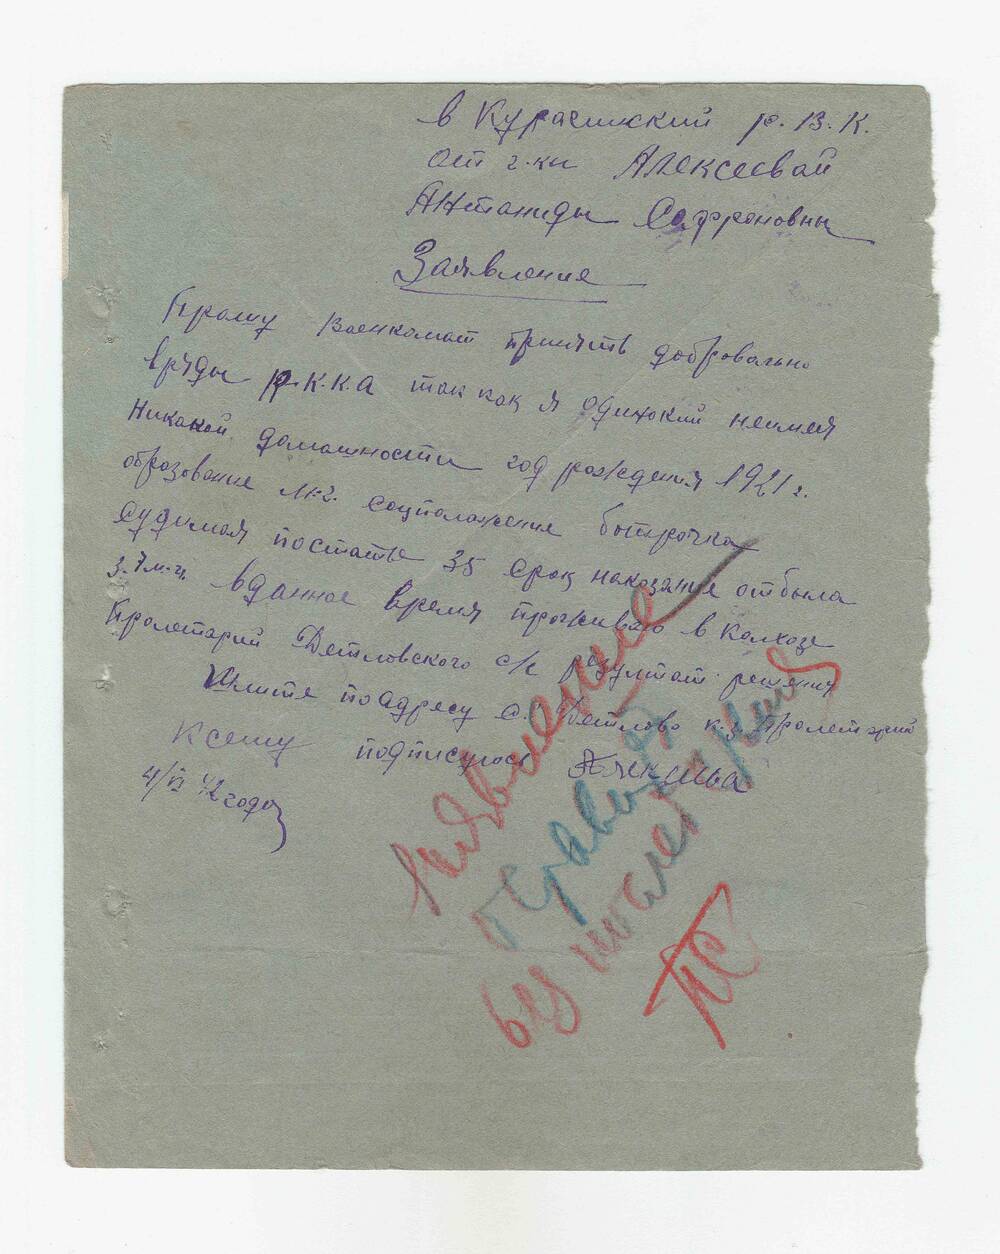 в Курасшкский р.В.К.
от г-ки Алексеевай
Антаниды Сафроновны
Заявление
Прошу Военкомат принять добровально
вряды р.К.К.А так как я одинокий неимея
Никакой домашности год рождения 1921 г.
образование соцположение батрачка
Судимая постатье 35 срок наказание отбыла
3. 7 м-ц. вданное время проживаю в Колхозе
Пролетарий Детловского с/с результат решения
Шлите поадресу с. Детлово к-з Пролетарий
Ксему подписуюсь Алексева
4/VI 42 года
Заявление
оставить
без последствия